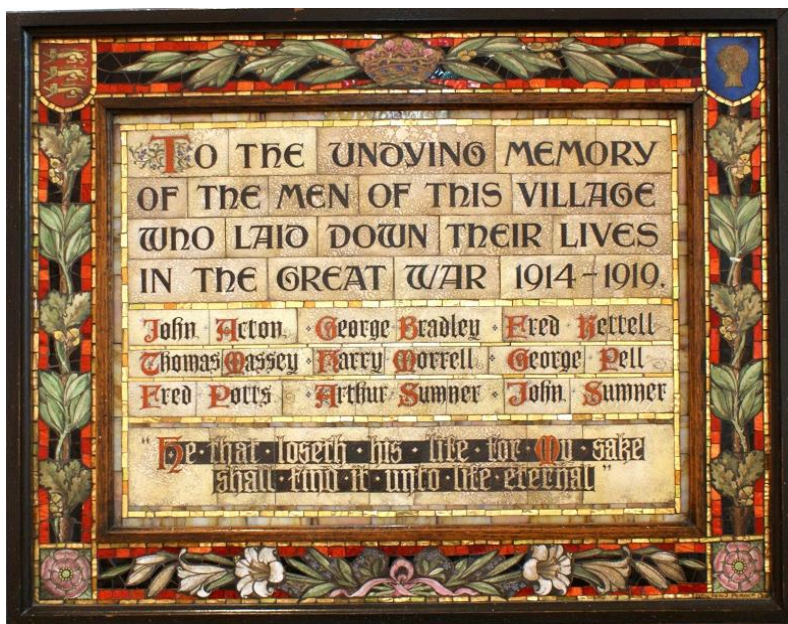 TO THE UNDYING MEMORY
OF THE MEN OF THIS VILLAGE
WHO LAID DOWN THEIR LIVES
IN THE GREAT WAR 1914-1919.
John Acton · George Bradley · Fred Kettell
Thomas Massey · Harry Morrell · George Pell
Fred Potts · Arthur Sumner · John Sumner
"He · that · loseth · his · life · for · My · sake
shall · find · it · unto · life · eternal"